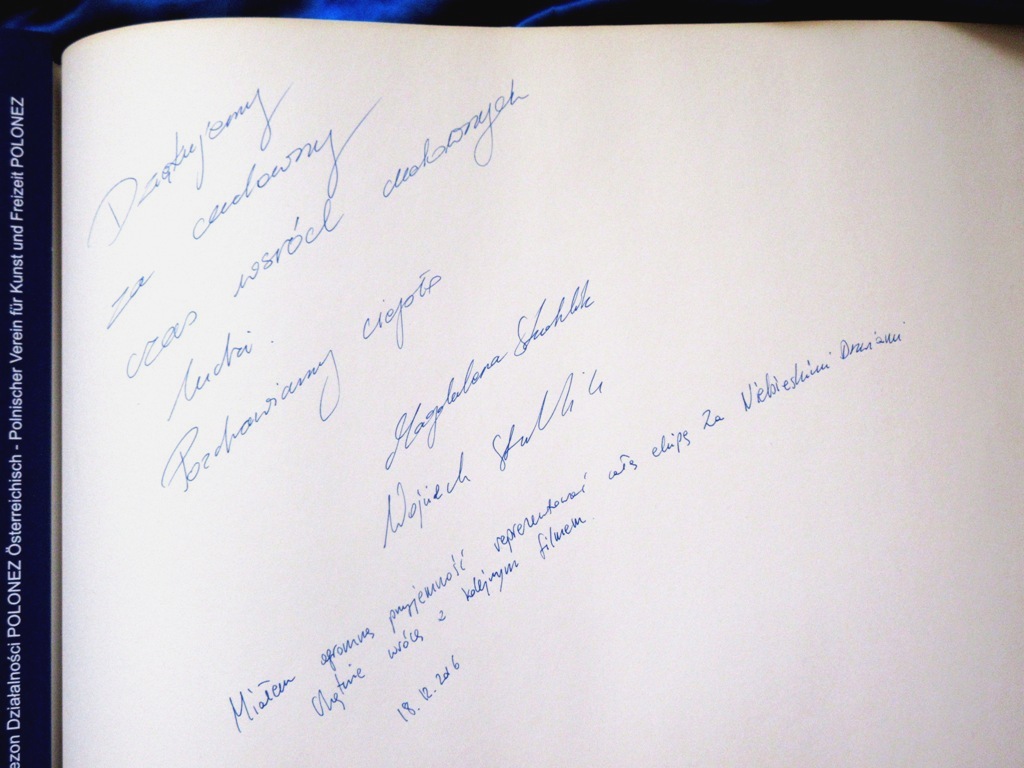 ezon Działalności POLONEZ Österreichisch - Polnischer Verein für Kunst und Freizeit POLONEZ
Dziękujemy
za cudowny
czas wsród cudownych
ludzi.
Pozdrawiamy ciepło
Magdalena
Wojciech
Miałem ogromną przyjemność reprezentować całą ekipę Za Niebieskimi Drzwiami
Chętnie wrócę z kolejnym filmem.
18.12.2016